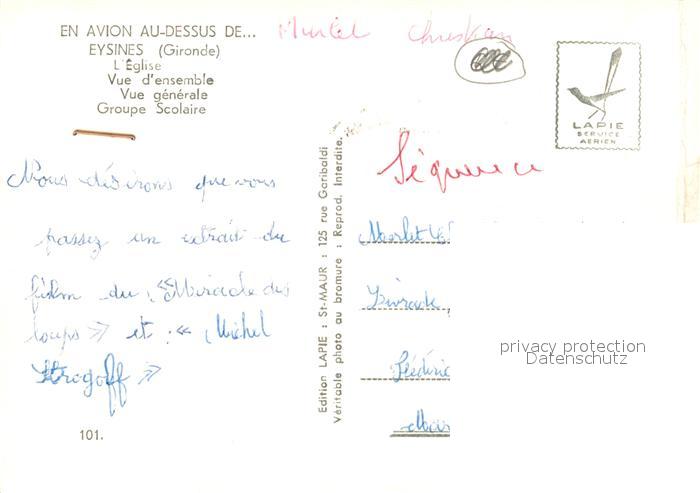 EN AVION AU-DESSUS DE...
EYSINES (Gironde)
L'Église
Vue d'ensemble
Vue générale
Groupe Scolaire
Christian
LAPIE
SERVICE
AERIEN
Séquence
Nous désirons que vous
passez un extrait du
film du "Miracle des
loups" et "Michel
Strogoff"
Edition LAPIE : St-MAUR : 125 rue Garibaldi
Véritable photo au bromure : Reprod. Interdite.
privacy protection
Datenschutz
101.